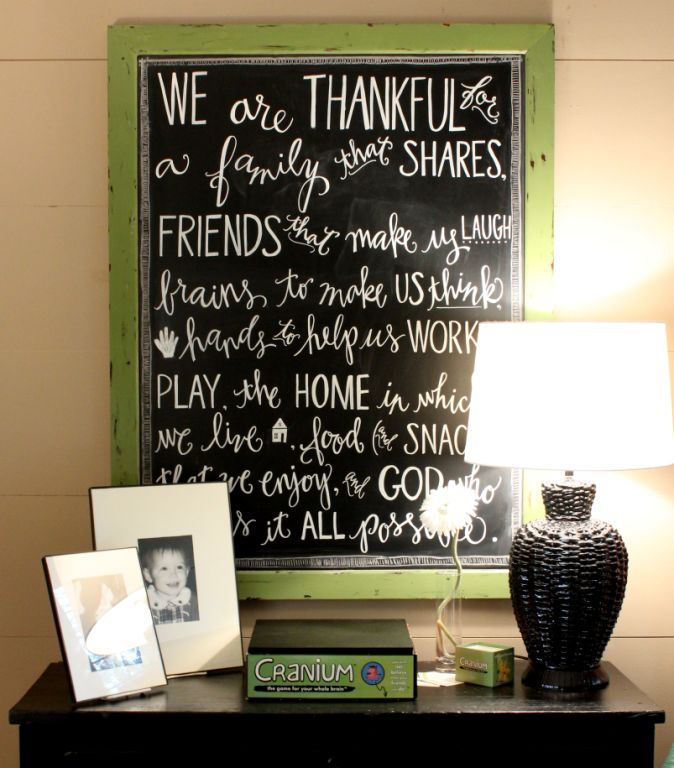 WE are THANKFUL for
a family that SHARES,
FRIENDS that make us LAUGH
brains to make US think,
hands to help us WORK
PLAY, the HOME in whic
we live, food (and SNAC
that we enjoy, and GOD who
s it ALL possible.
CRANIUM
the game for your whole brain
CRANIUM